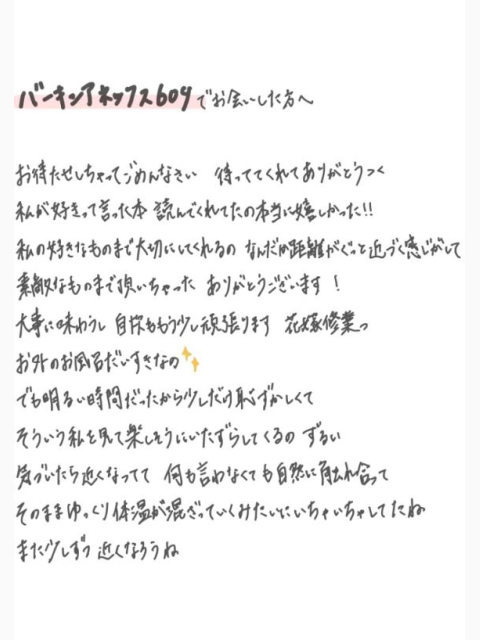 バーキンアネックス604でお会いした方へ
お待たせしちゃってごめんなさい 待っててくれてありがとうっ
私が好きって言った本 読んでくれてたの本当に嬉しかった!!
私の好きなものまで大切にしてくれるの なんだか距離がぐっと近づく感じがして
素敵なものまで頂いちゃった ありがとうございます!
大事に味わうし 自炊ももう少し頑張ります 花嫁修業っ
お外のお風呂だいすきなの✨
でも明るい時間だったから少しだけ恥ずかしくて
そういう私を見て楽しそうにいたずらしてくるの ずるい
気づいたら近くなってて 何も言わなくても自然に触れ合って
そのままゆっくり体温が混ざっていくみたいにいちゃいちゃしてたね
また少しずつ近くなろうね